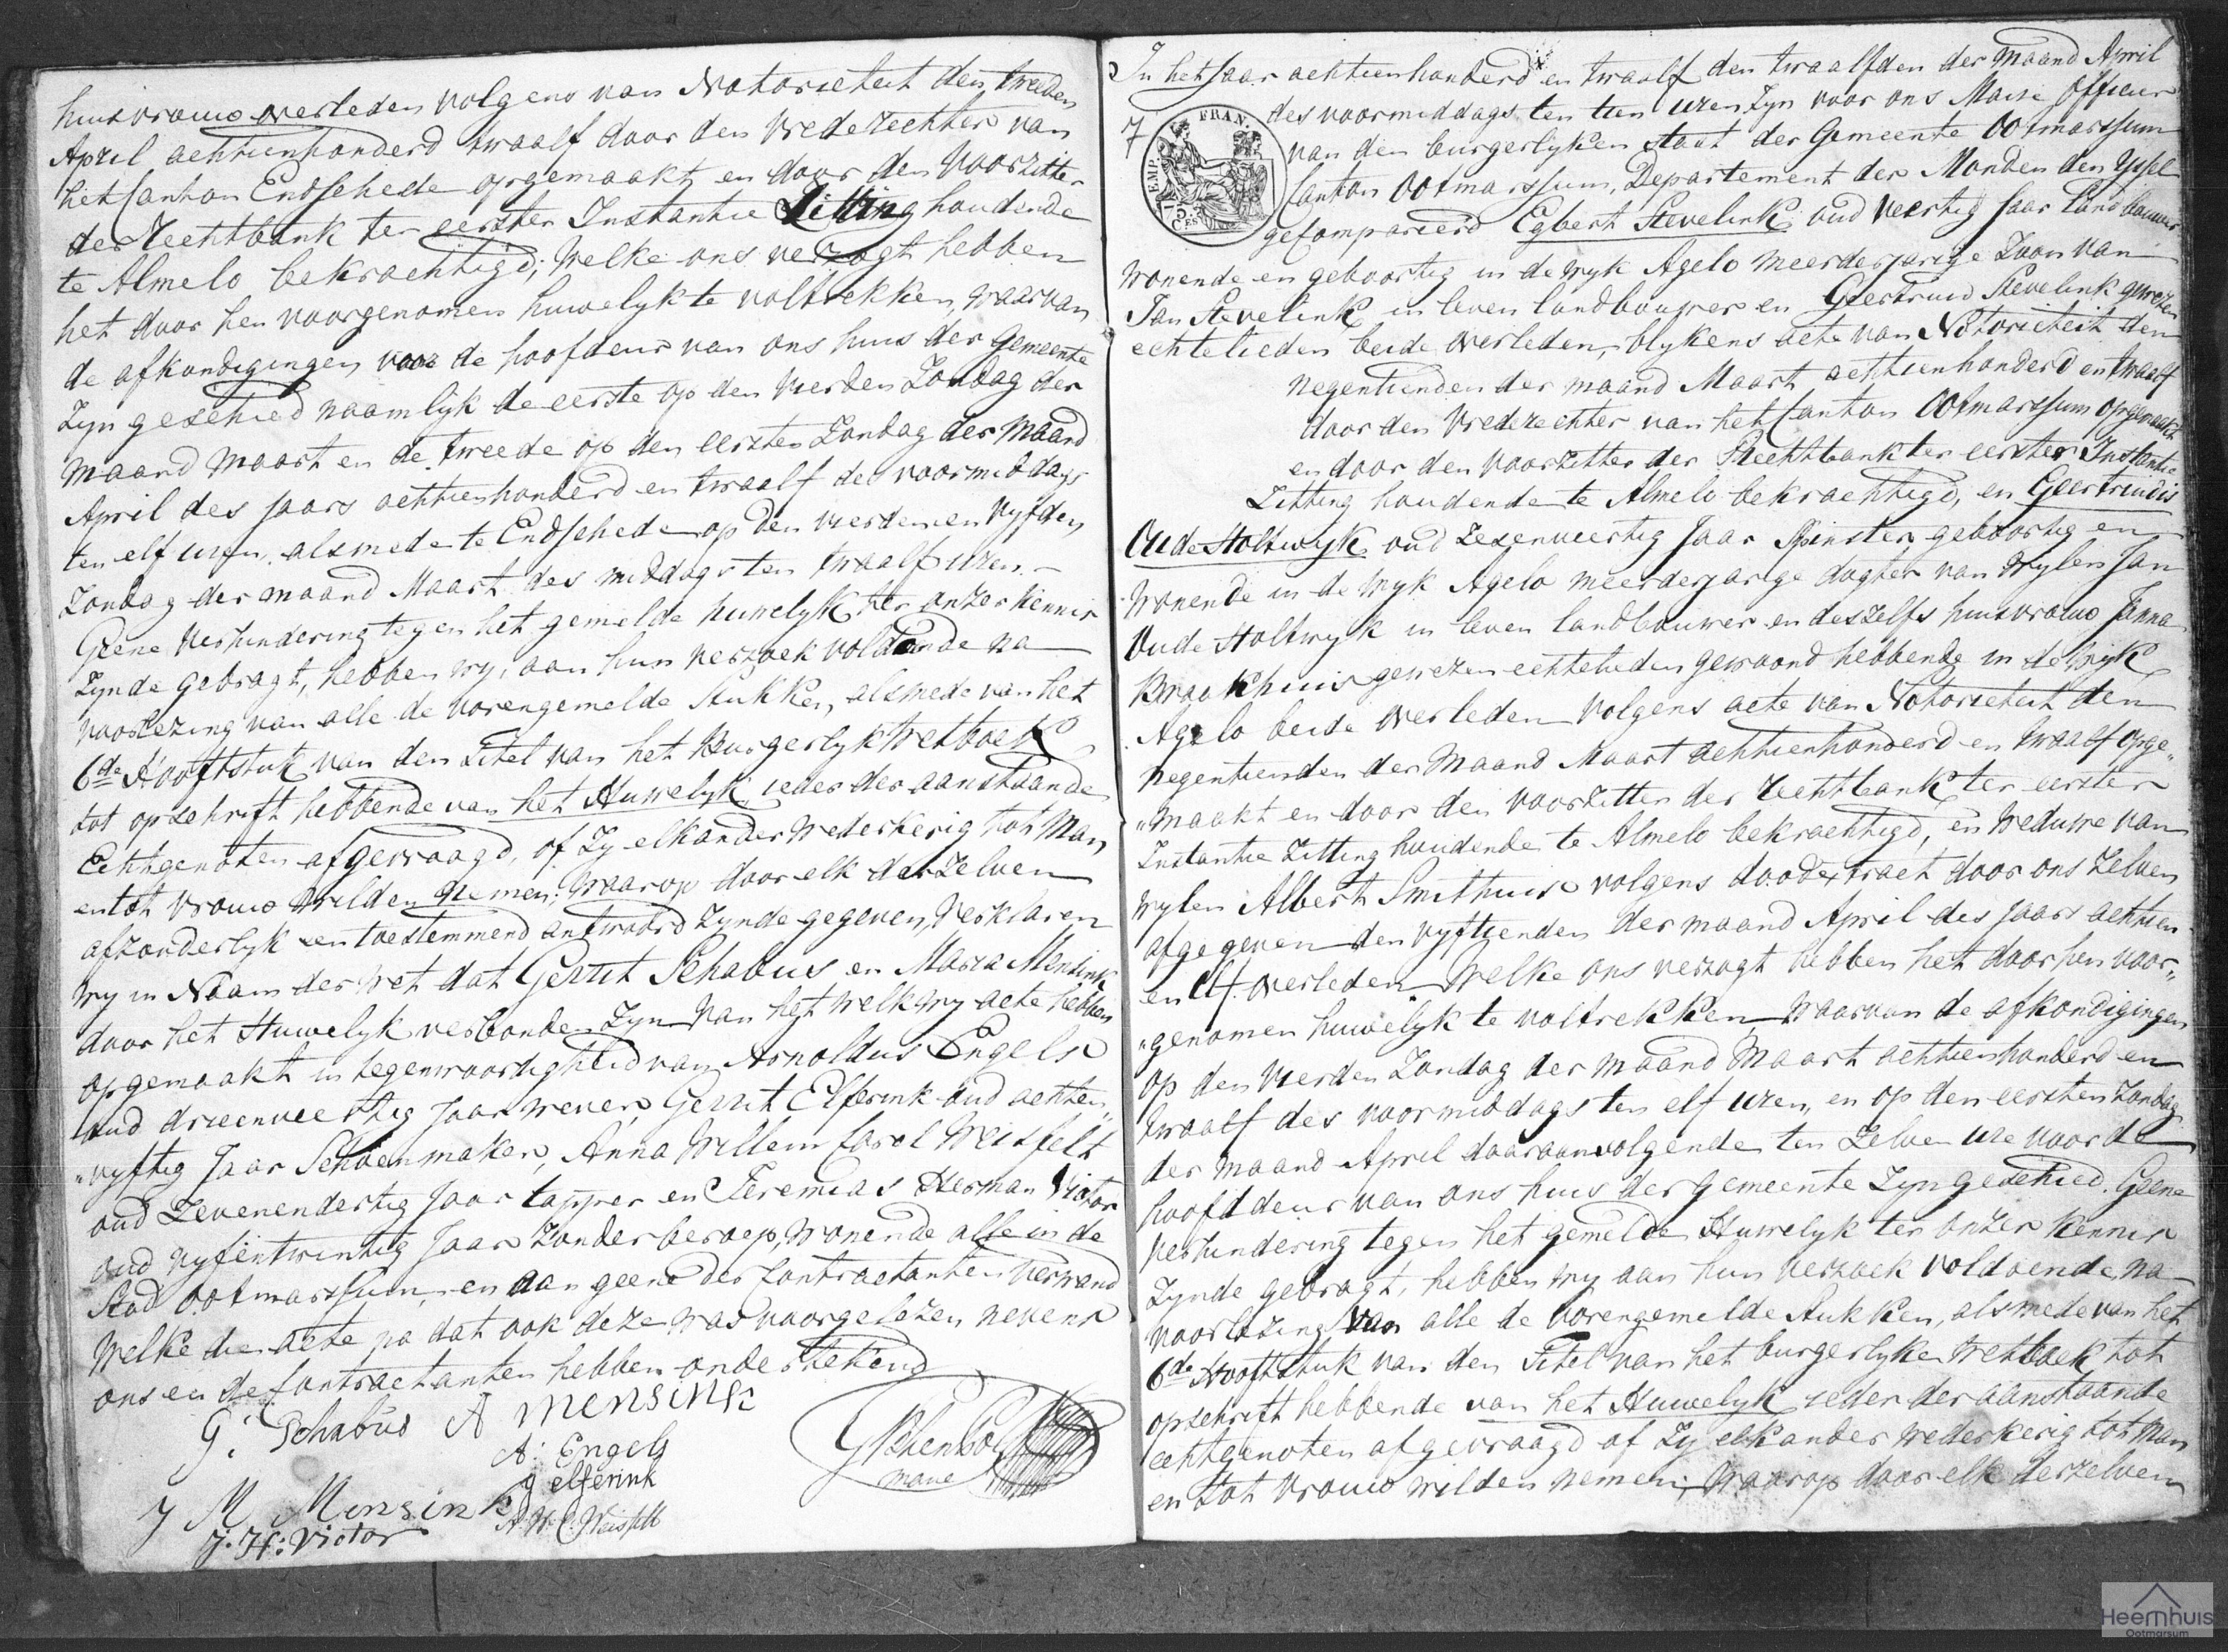 huisvrouw overleden volgens van Notorieteit den tweeden
April achttienhonderd twaalf door den Vrederechter van
het Canton Endschede opgemaakt en door den Voorzitter
der Rechtbank ter eerster Instantie Zitting houdende
te Almelo bekrachtigd; Welke ons verzogt hebben
het door hen voorgenomen huwelyk te voltrekken, waarvan
de afkondigingen voor de hoofdeur van ons huis der gemeente
Zyn geschied naamlyk de eerste op den vierden Zondag der
maand maart en de tweede op den eersten Zondag der maand
April des Jaars achttienhonderd en twaalf des voormiddags
ten elf uren, alsmede te Endschede op den vierden en vyfden
Zondag der maand Maart des middags ten twaalf uren. –
Geene Verhindering tegen het gemelde huwelyk ter onzer kennis
Zynde gebragt, hebben wy, aan hun verzoek voldoende na
voorlezing van alle de vorengemelde stukken, alsmede van het
6de Hooftstuk van den Titel van het Burgerlyk Wetboek
tot opschrift hebbende van het Huwelyk ieder der aanstaande
Echtgenoten afgevraagd, of Zy elkander wederkerig tot Man
en tot vrouw wilden nemen; Waarop door elk derzelven
afzonderlyk een toestemmend antwoord Zynde gegeven, Verklaren
Wy in Naam der wet, dat Gerrit Schabus en Maria Mensink
door het Huwelyk verbonden Zyn Van het welk wy acte hebben
opgemaakt in tegenwoordigheid van Arnoldus Engels
oud drieenveertig Jaar wever, Gerrit Elferink oud achten
„vyftig Jaar Schoenmaker, Anna Willem Carel Weisfelt
oud Zevenendertig Jaar tapper en Jeremias Herman Victor
oud vyfentwintig Jaar Zonder beroep, wonende alle in de
Stad Ootmarssum, en aan geene der Contractanten verwand
Welke die acte na dat ook deze was voorgelezen nevens
ons en de Contractanten hebben ondertekend
G: Schabus A Mensink
A: Engels
g elferink
maire
J M Mensink
A. W. C. Weisfelt
J: H: Victor
In het Jaar achttienhonderd en twaalf den twaalfden der maand April
7
FRAN.
EMP.
des voormiddags ten tien uren Zyn voor ons Maire Officier
van den burgerlyken staat der Gemeente Ootmarssum
Canton Ootmarssum, Departement der Monden den Yssel
gecompareerd Egbert Stevelink oud veertig Jaar landbouwer
wonende en geboortig in de wyk Agelo meerderjarige Zoon van
Jan Stevelink in leven landbouwer en Geertruid Stevelink gewezen
echtelieden beide overleden, blykens acte van Notorieteit den
negentienden der maand Maart achttienhonderd en twaalf
door den Vrederechter van het Canton Ootmarssum opgemaakt
en door den voorzitter der Rechtbank ter eerster Instantie
Zitting houdende te Almelo bekrachtigd, en Geertruidis
Oude Holtwyk oud Zesenveertig Jaar Spinster, geboortig en
wonende in de wyk Agelo meerderjarige dogter van wylen Jan
Oude Holtwyk in leven landbouwer en deszelfs huisvrouw Janna
Braakhuis gewezen echtelieden gewoond hebbende in de wyk
Agelo beide overleden volgens acte van Notorieteit den
negentienden der Maand Maart achttienhonderd en twaalf opge„
„maakt en door den voorzitter der Rechtbank ter eerster
Instantie Zitting houdende te Almelo bekrachtigd, en Weduwe van
wylen Albert Smithuis volgens doodextract door ons zelven
afgegeven den vyftienden der maand April des Jaars achttien
en elf overleden Welke ons verzogt hebben het door hen voor„
„genomen huwelyk te voltrekken, Waarvan de afkondigingen
op den vierden Zondag der maand Maart achttienhonderd en
twaalf des voormiddags ten elf uren, en op den eersten Zondag
der maand April daaraanvolgende ten Zelven ure voor de
hoofddeur van ons huis der gemeente Zyn geschied. Geene
verhindering tegen het gemelde Huwelyk ter onzer kennis
Zynde gebragt, hebben wy aan hun verzoek voldoende, na
voorlezing van alle de vorengemelde stukken, alsmede van het
6de Hooftstuk van den Titel van het burgerlyke wetboek tot
opschrift hebbende van het Huwelyk ieder der aanstaande
echtgenoten afgevraagd of Zy elkander wederkerig tot Man
en tot vrouw wilden nemen; Waarop door elk derzelven
Heemhuis
Ootmarsum